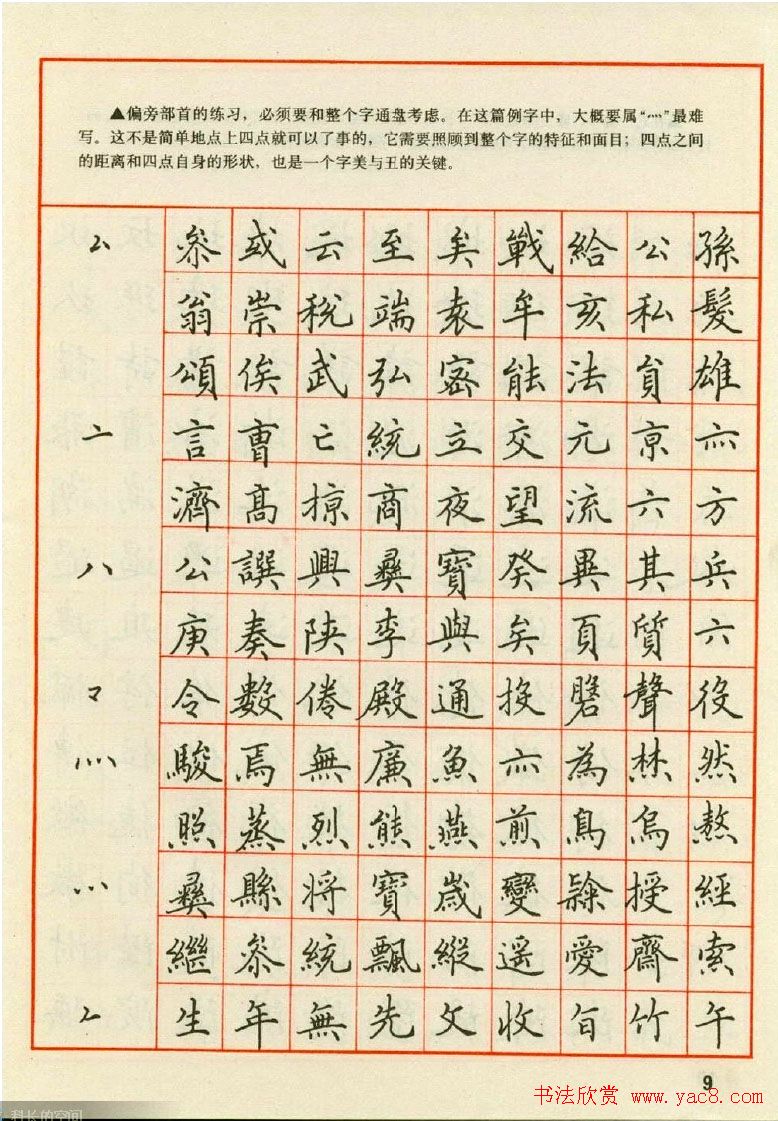 ▲偏旁部首的练习，必须要和整个字通盘考虑。在这篇例字中，大概要属“灬”最难
写。这不是简单地点上四点就可以了事的，它需要照顾到整个字的特征和面目；四点之间
的距离和四点自身的形状，也是一个字美与王的关键。
厶 参 或 云 至 矣 戰 給 公 孫
翁 崇 税 端 袁 牟 亥 私 髮
頌 俟 武 弘 密 能 法 貟 雄
亠 言 曹 亡 統 立 交 元 京 亦
濟 高 掠 商 夜 望 流 六 方
八 公 譔 興 彝 寶 癸 異 其 兵
庚 奏 陕 李 與 矣 頁 質 六
龴 令 數 倦 殿 通 投 聲 役
灬 駿 焉 無 廉 魚 亦 為 然
照 蒸 烈 熊 燕 煎 鳥 烏 熬
彝 縣 将 寶 歳 變 授 經
繼 参 統 飄 縱 遥 愛 齋 索
𠂉 生 年 無 先 文 收 竹 午
9
书法欣赏 www.yac8.com
科长的空间